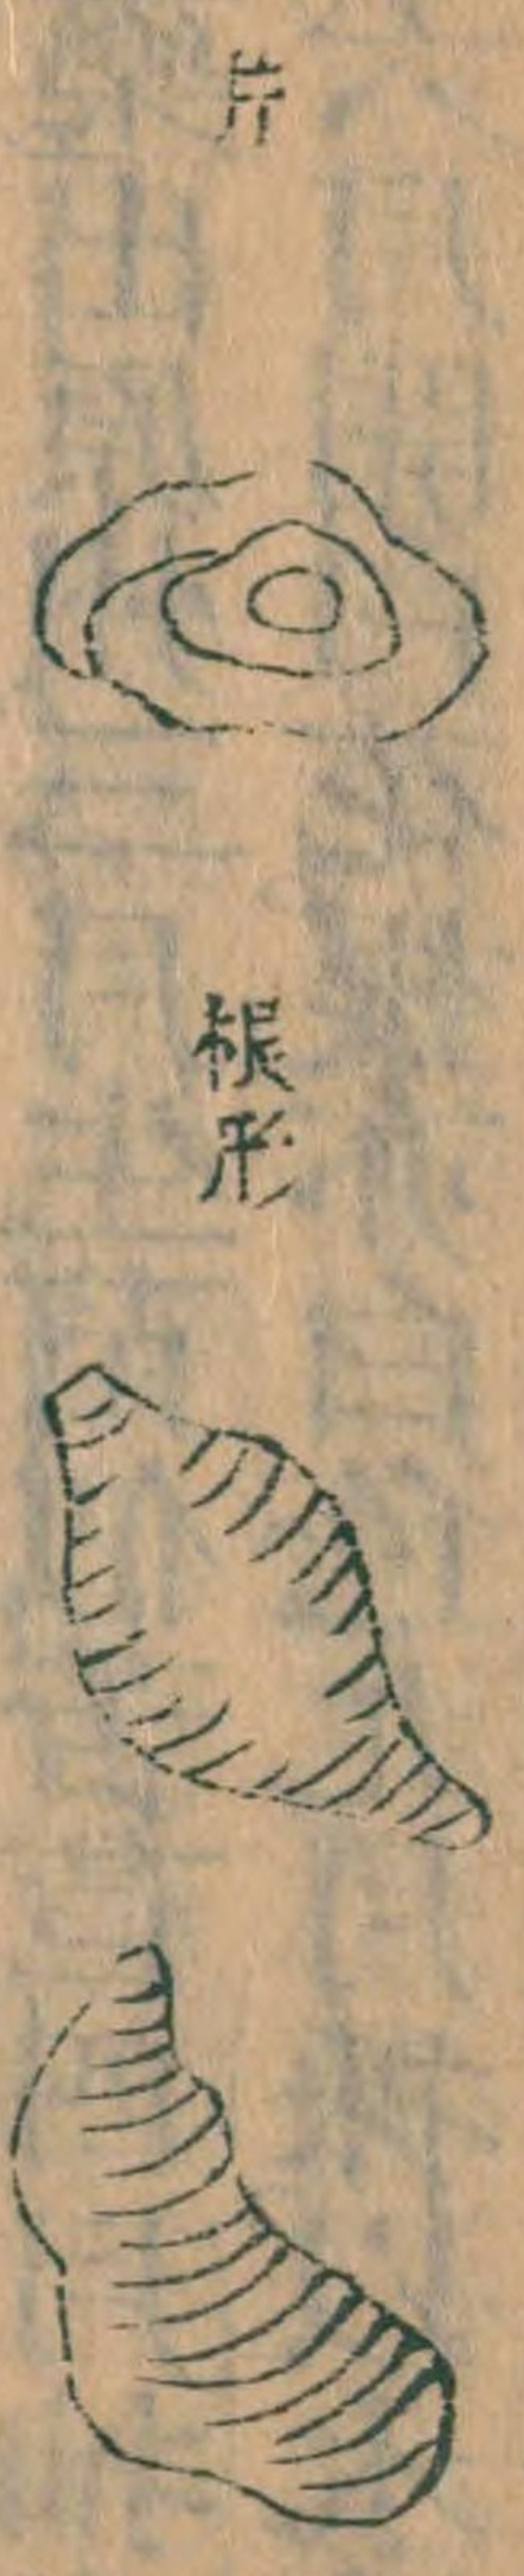 片
根形